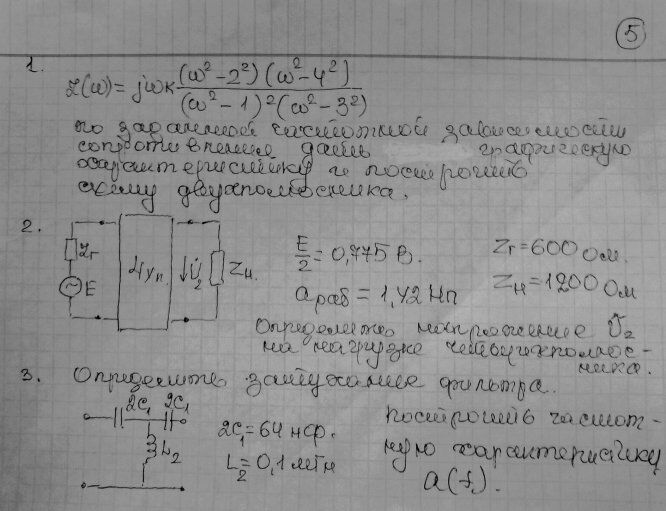 5
1.
Z(ω) = jωk (ω² - 2²)(ω² - 4²) / (ω² - 1)²(ω² - 3²)
по заданной частотной зависимости
сопротивления дать графическую
характеристику и построить
схему двухполюсника.
2.
Zг
E
U̇₂
Zн.
E/2 = 0,775 В.
Zг = 600 Ом.
aраб = 1,42 Нп
Zн = 1200 Ом
Определить напряжение U̇₂
на нагрузке четырехполюс-
ника.
3. Определить затухание фильтра.
2C₁ 2C₁
L₂
2C₁ = 64 нф.
L₂ = 0,1 мГн
Построить частот-
ную характеристику
a(f).